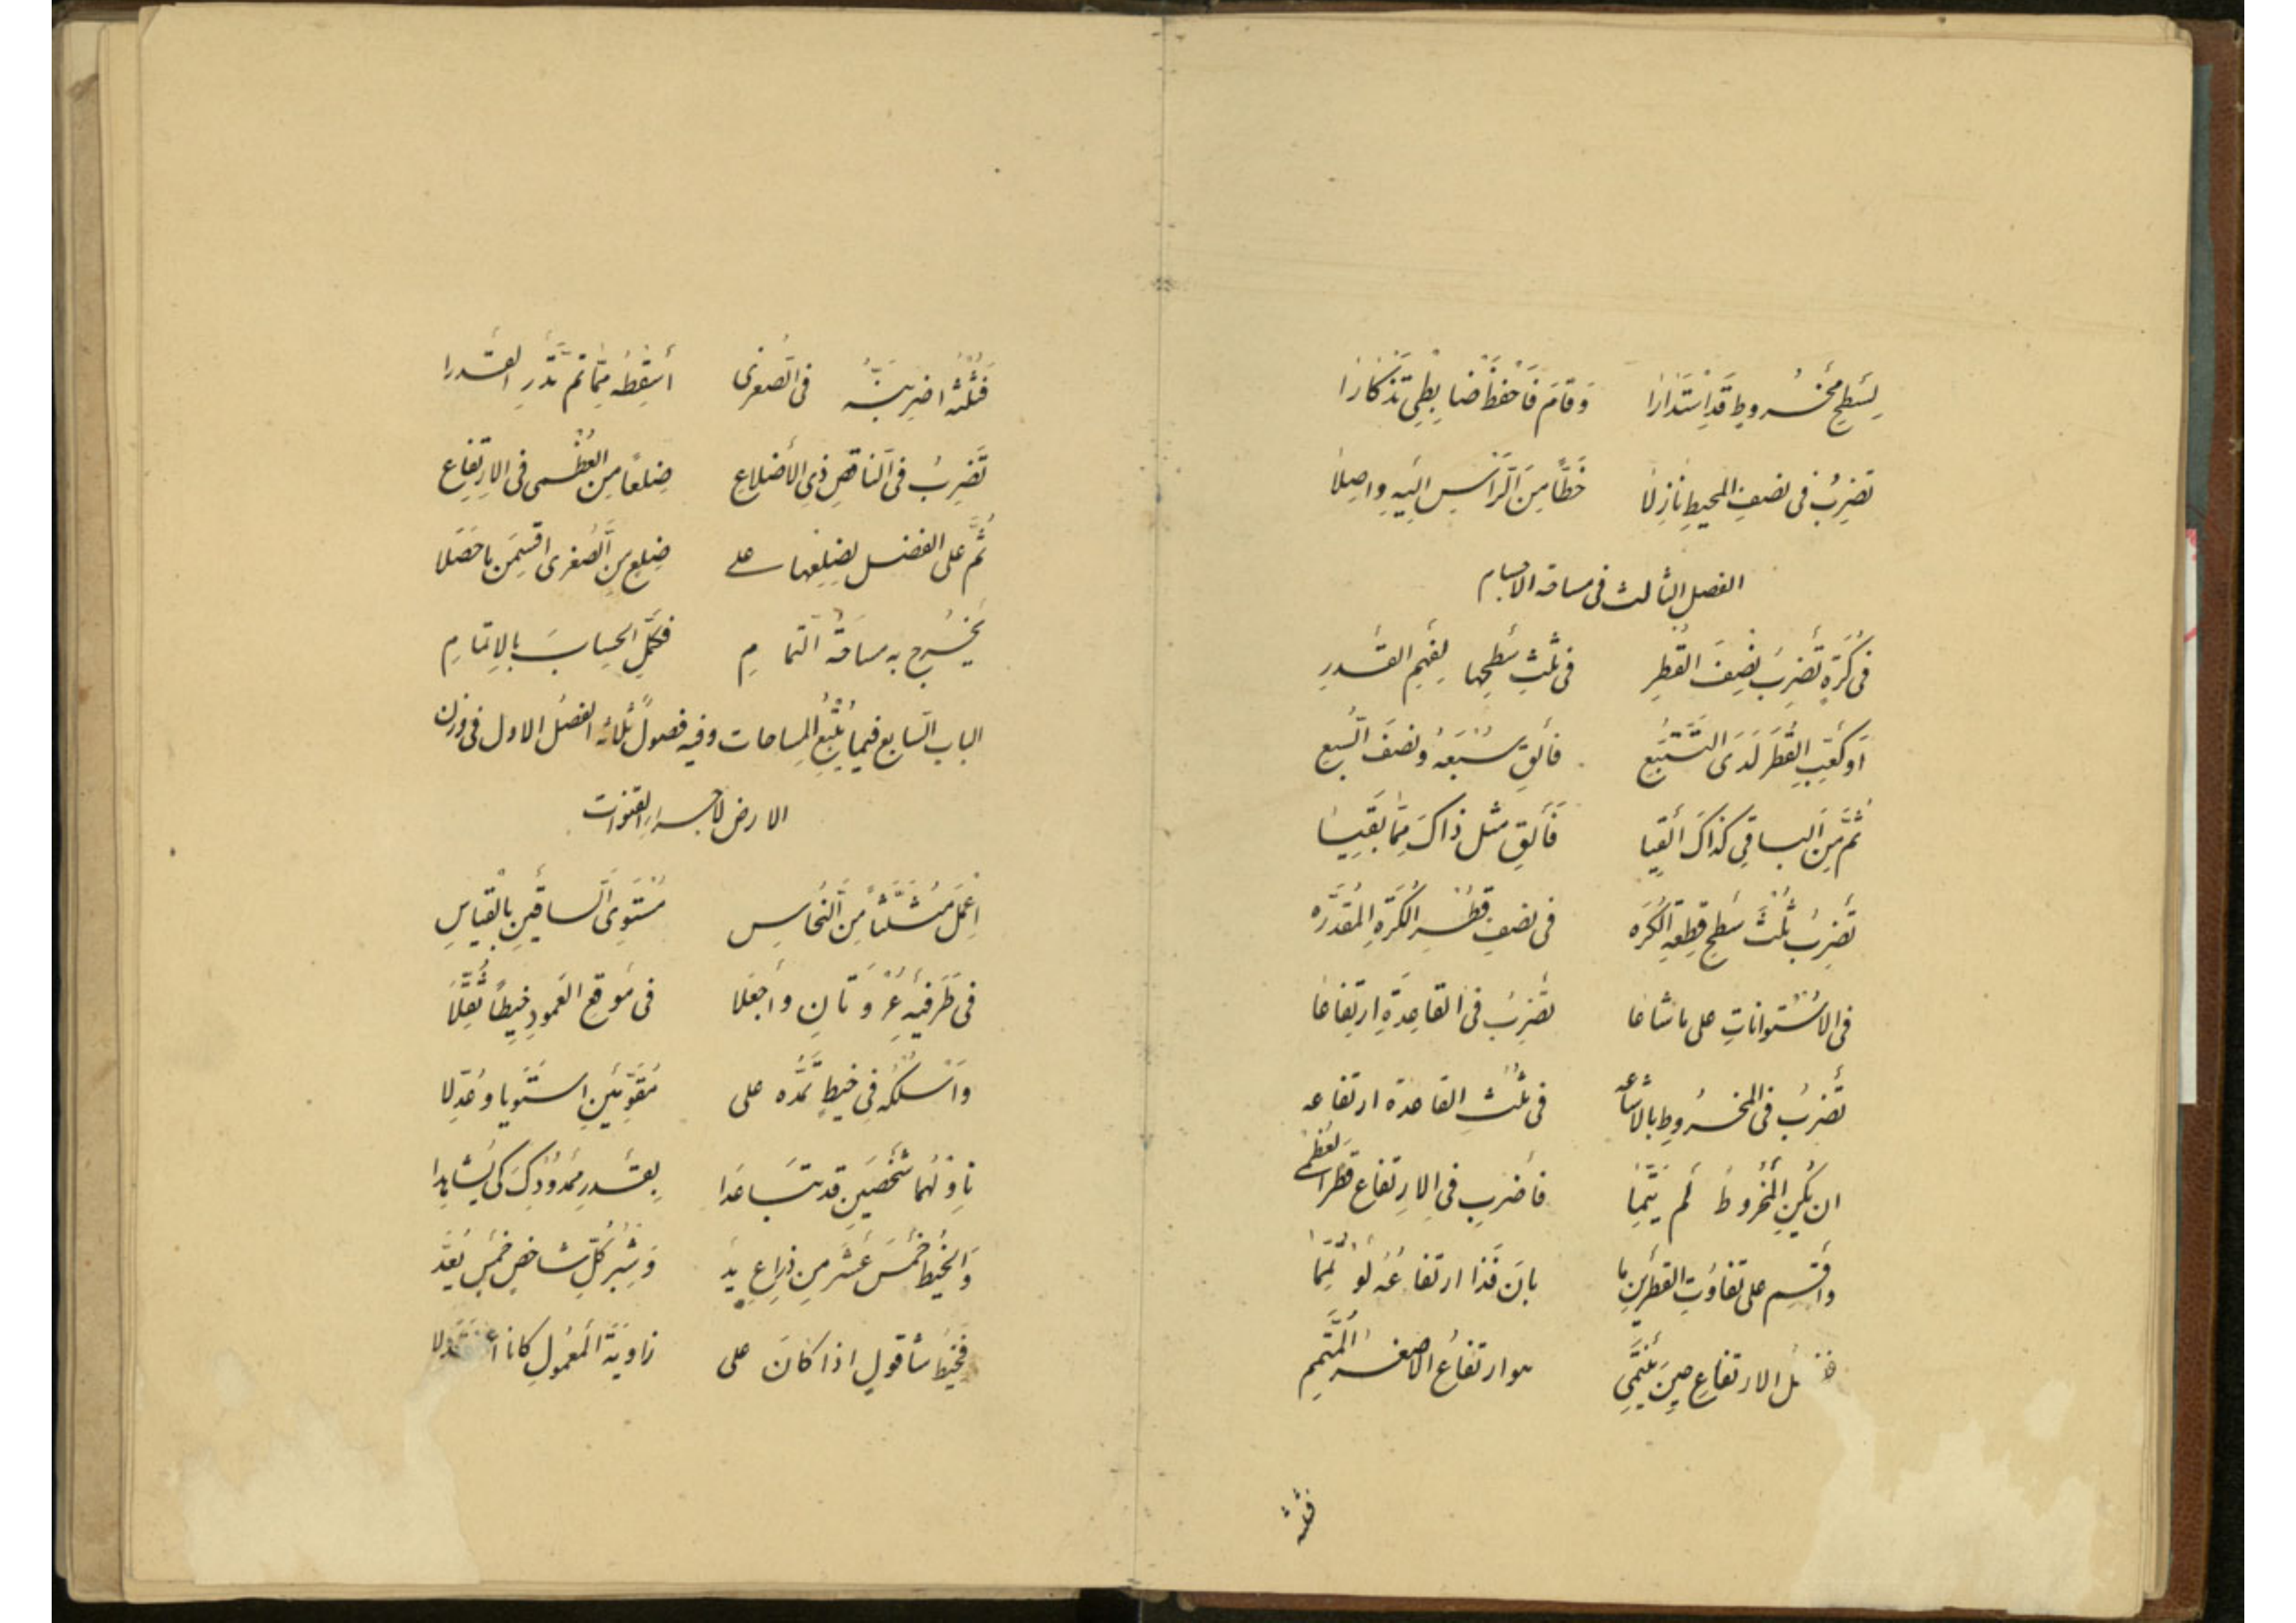 لِسَطحِ مخروطٍ قَدِ اسْتَدَارَا وَقَامَ فَاحْفَظْ ضابِطِي تَذْكَارَا
تضرِبُ فی نصفِ المحیطِ نَازِلَا خَطًّا مِنَ الرَّأسِ الَیهِ واصِلَا
الفصل الثالث فی مساحة الاجسام
فی كُرَةٍ تَضرِبُ نِصفَ القُطرِ فی ثلثِ سَطحِها لِفَهمِ القَدرِ
اَو كَعّبِ القُطرَ لَدَی التَّتَبُّعِ فأَلقِ سُبْعَهُ ونصفَ السُّبعِ
ثُمَّ مِنَ الباقی كذاكَ ألقِیا فَأَلقِ مثلَ ذاكَ مِمَّا بَقِیَا
تَضرِبُ ثُلْثَ سَطحِ قِطعةِ الكُرَه فی نصفِ قُطْرِ الكُرَةِ المُقَدَّرَه
فی الاُسْتوانَاتِ علی ما شاعا تَضرِبُ فی القاعِدَةِ ارتِفاعَا
تَضرِبُ فی المخروطِ بالاشاعه فی ثُلْثِ القاعدة ارتفاعه
ان یَكُنِ المَخْرُوطُ لَم یَتِمَّا فَاضرِب فی الاِرتفاع قطرَ العُظمی
واقسِم علی تفاوُتِ القطرَینِ ما بانَ فَذا ارتفاعُهُ لَوْ تُمِّمَا
الارتفاعِ حِینَ یَنتَمِی هو ارتفاعُ الاصغرِ المُتَمِّمِ
فثلثه
فَثُلْثُه اضرِبَنَّهُ فی الصُغری أَسقِطهُ مِمَّا تم تَدْرِ القَدرا
تَضرِبُ فی النَاقصِ ذِی الأَضلاعِ ضِلعًا مِن العُظْمی فی الاِرتِفاعِ
ثُمَّ علی الفضل لضِلعِها علی ضِلعٍ مِنَ الصُغری اقسِمَن ما حَصَلا
یَخْرُج به مساحَةُ التَّمامِ فكَمِّلِ الحِسابَ بالاِتمَامِ
الباب السّابع فیما یَتْبَعُ المِساحات وفیه فصولٌ ثلاثة الفصلُ الاول فی وزن
الارض لاجراءِ القنوات
اِعْمَل مُثَلَّثًا مِنَ النُحَاسِ مُسْتَوِیَ السَاقَینِ بِالْقِیاسِ
فی طَرَفَیهِ عُرْوَتَانِ وأَجعَلَا فی مَوقعِ العَمودِ خیطًا ثُقِّلَا
وَاسْلُكْهُ فِی خیطٍ تَمُدُّه علی مُقَوَّمَینِ استَوَیا وعُدِّلا
نَاوَلْهُما شَخْصَینِ قد تَبَاعَدا بِقَدرِ مَمدُودِكَ كَی یُشاهِدا
وَالخَیطُ خَمْسَ عَشَرَ مِن ذِراعِ یَد وَشِبْرُ كُلِّ شاخصٍ خَمسٌ یُعَدّ
فَخَیطُ شَاقولٍ اذا كانَ علی زاوِیَةَ المَعمُولِ كانا اعتَدَلا